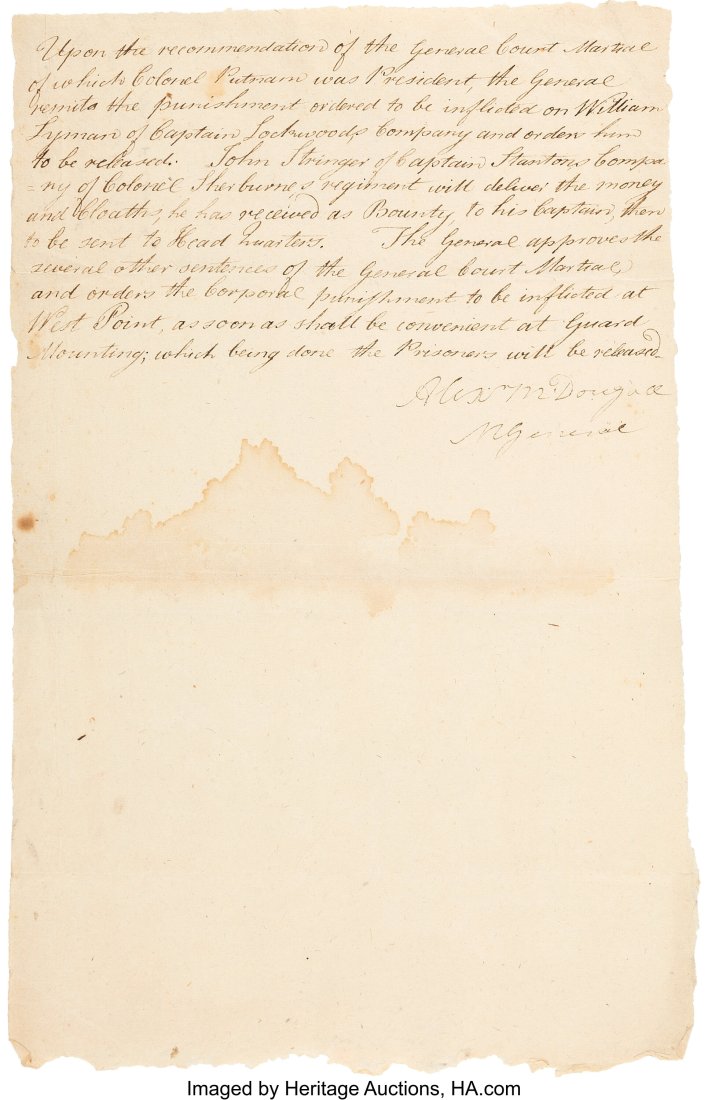 Upon the recommendation of the General Court Martial
of which Colonel Putnam was President, the General
remits the punishment ordered to be inflicted on William
Lyman of Captain Lockwoods Company and orders him
to be released. John Stringer of Captain Stantons Compa-
=ny of Colonel Sherburne's regiment will deliver the money
and Cloaths, he has received as Bounty, to his Captain, then
to be sent to Head Quarters. The General approves the
several other sentences of the General Court Martial,
and orders the Corporal punishment to be inflicted at
West Point, as soon as shall be convenient at Guard
Mounting; which being done the Prisoners will be released.
Alexr McDougall
MGeneral
Imaged by Heritage Auctions, HA.com